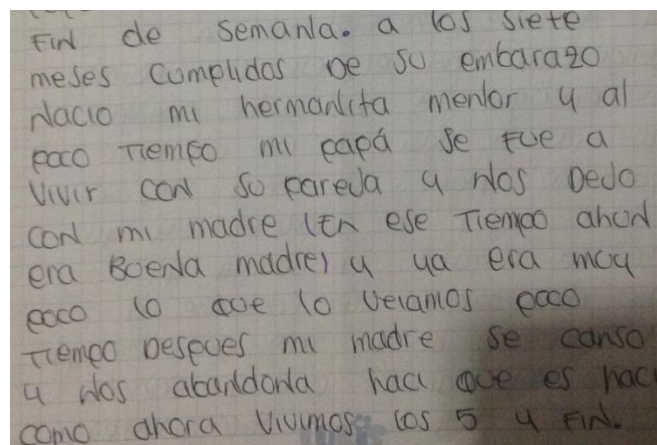 FIN de semanla. a los siete
meses cumplidos De su embarazo
Nacio mi hermanlita menlor y al
poco Tiempo mi papá se fue a
vivir con su pareja y Nos Dejo
con mi madre (En ese Tiempo ahun
era Buena madre) y ya era muy
poco lo que lo veiamos poco
Tiempo Despues mi madre se canso
y Nos abanldonla haci que es haci
como ahora vivimos los 5 y FIN.